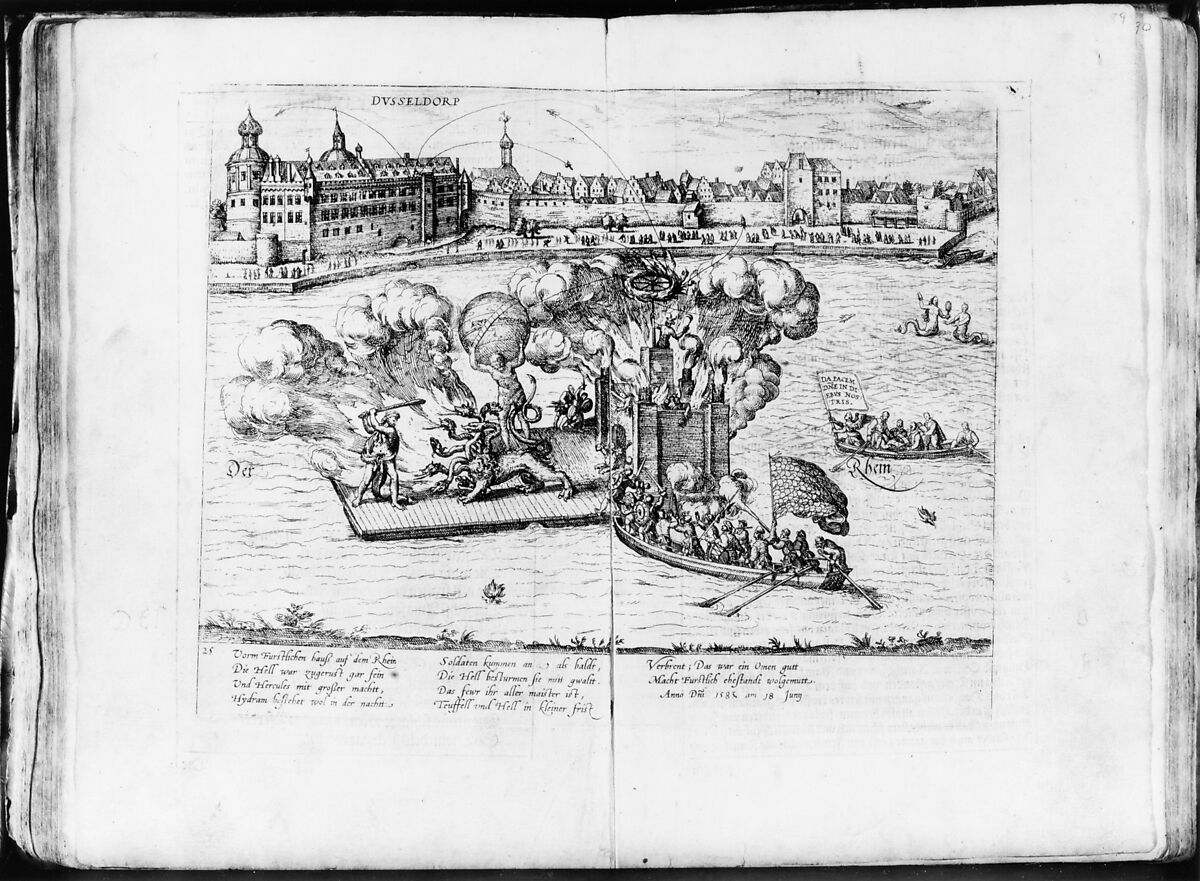 DVSSELDORP
DA PACEM
DÑE IN DI
EBVS NOS
TRIS.
Der
Rhein
25
Vorm Furstlichen hauß auf dem Rhein
Die Hell war zugerust gar fein
Vnd Hercules mit großer machtt,
Hydram bestehet wol in der nachtt.
Soldaten kummen an als baldt,
Die Hell besturmen sie mitt gwalt.
Das fewr ihr aller maister ist,
Teuffell vnd Hell in kleiner frist
Verbrent; Das war ein Omen gutt
Macht Furstlich ehestandt wolgemutt.
Anno Dñi 1585 am 18 Junij